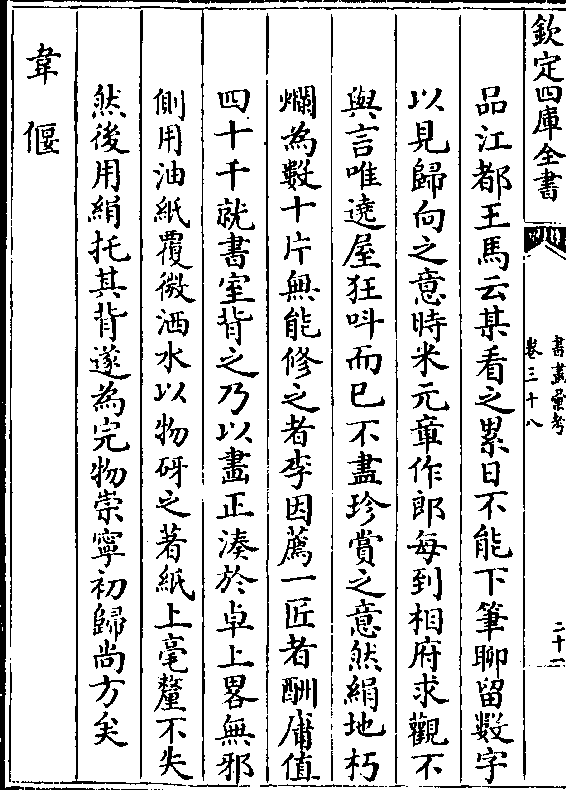 欽定四庫全書
書畫彙考
卷三十八
二十一
品江都王馬云某看之累日不能下筆聊留數字
以見歸向之意時米元章作郎每到相府求觀不
與言唯遶屋狂呌而已不盡珍賞之意然絹地朽
爛為數十片無能修之者李因薦一匠者酬庸值
四十千就書室背之乃以畫正湊於卓上畧無邪
側用油紙覆微洒水以物砑之著紙上毫釐不失
然後用絹托其背遂為完物崇寧初歸尚方矣
韋偃